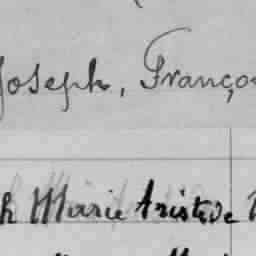 Joseph, Françoi
h Marie Aristide